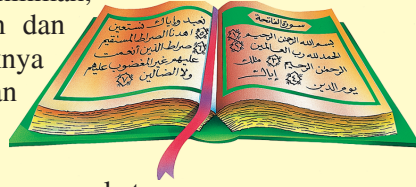 dan
knya
an
سورة الفاتحة
بسم الله الرحمن الرحيم
الحمد لله رب العالمين
الرحمن الرحيم ملك
يوم الدين إياك
نعبد وإياك نستعين
اهدنا الصراط المستقيم
صراط الذين أنعمت
عليهم غير المغضوب عليهم
ولا الضالين